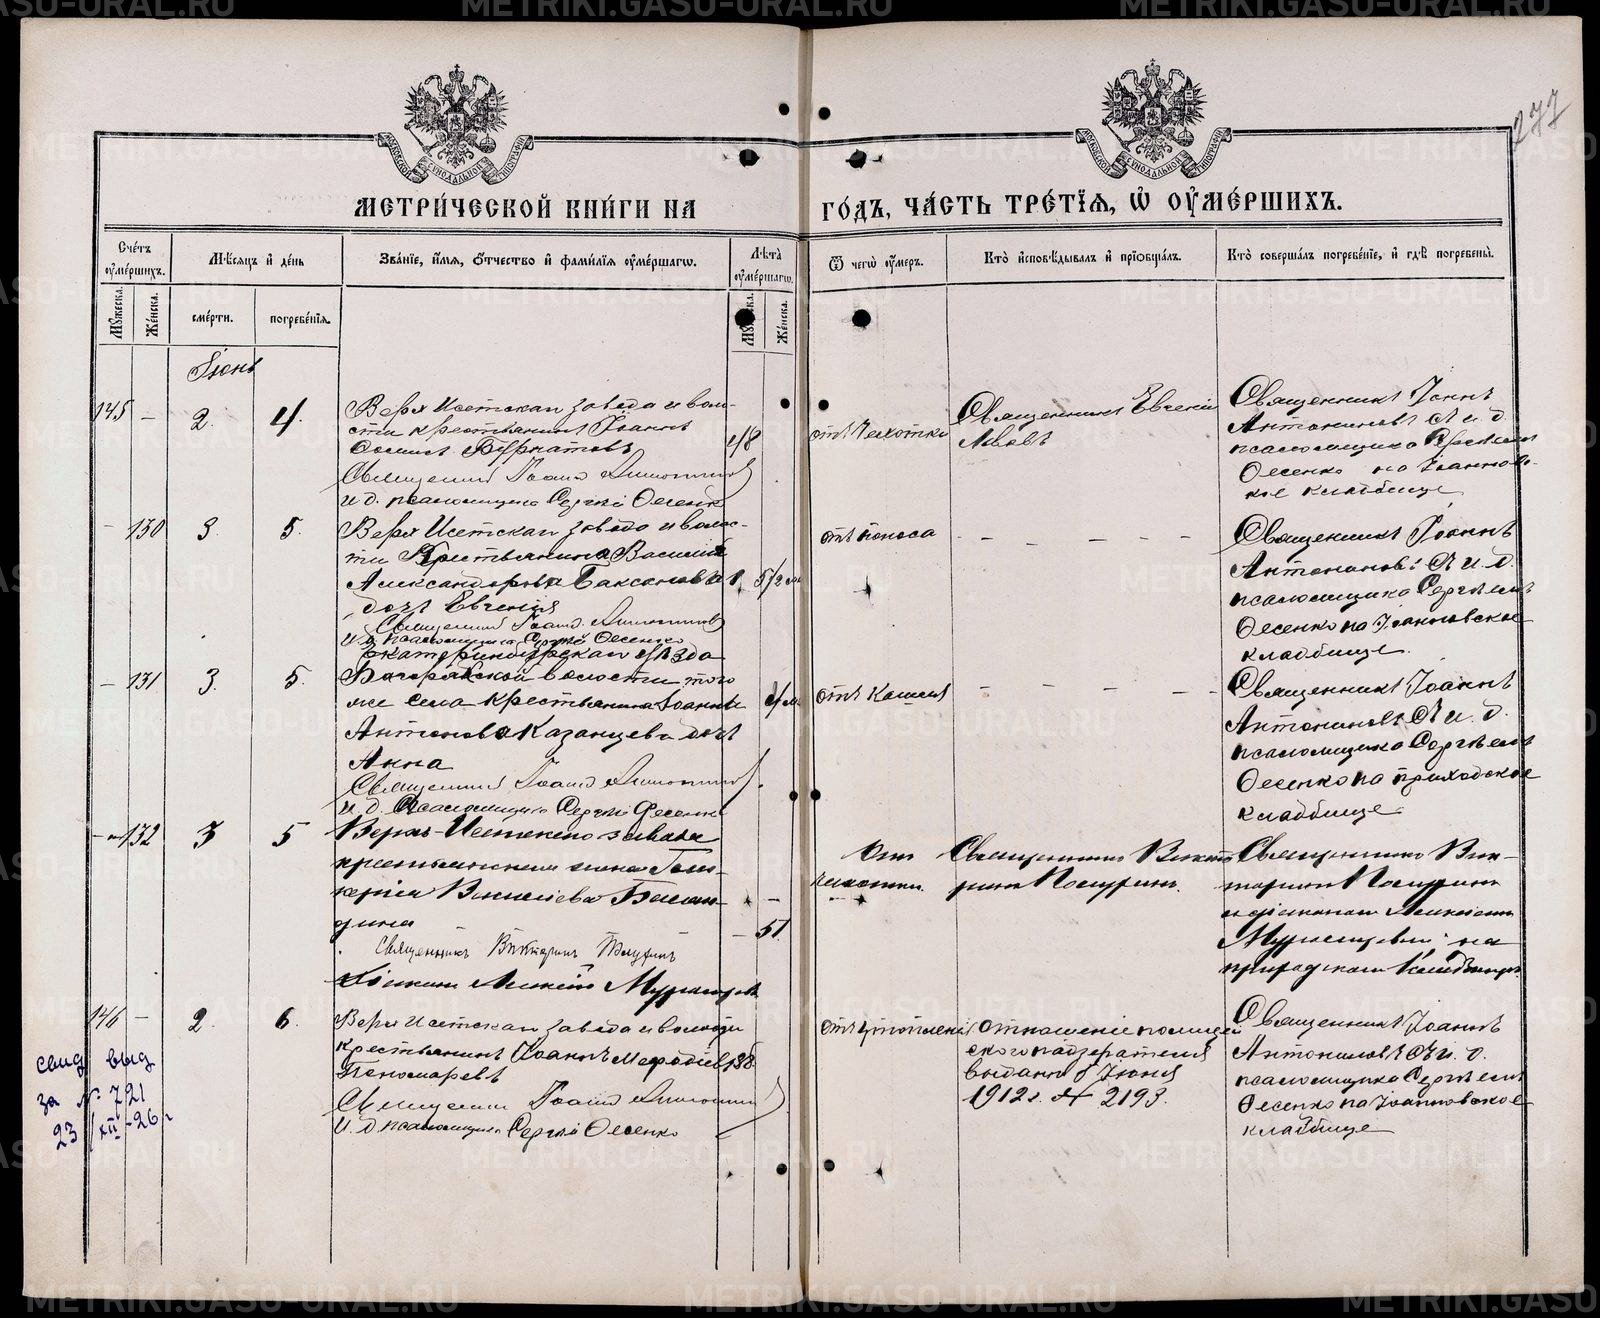 277
МОСКОВСКОЙ СѴНОДАЛЬНОЙ ТИПОГРАФІИ
МОСКОВСКОЙ СѴНОДАЛЬНОЙ ТИПОГРАФІИ
МЕТРИ́ЧЕСКОЙ КНИ́ГИ НА ГО́ДЪ, ЧА́СТЬ ТРЕ́ТІѦ, Ѡ҆ ОУ҆МЕ́РШИХЪ.
Сче́тъ оу҆ме́ршихъ.
Мѣ́сѧцъ и҆ де́нь
Зва́нїе, и҆́мѧ, ѻ҆́тчество и҆ фами́лїѧ оу҆ме́ршагѡ.
Лѣ́та оу҆ме́ршагѡ.
Ѿ чегѡ̀ оу҆́меръ.
Кто̀ и҆сповѣ́дывалъ и҆ прїѡбща́лъ.
Кто̀ соверша́лъ погребе́нїе, и҆ гдѣ̀ погребены̀.
Мꙋ́жеска.
Же́нска.
сме́рти.
погребе́нїѧ.
Мꙋ́жеска.
Же́нска.
Іюнь
145 — 2. 4.
Верх Исетскаго завода и воло-
сти крестьянинъ Іоаннъ
Бурматовъ
48
Священникъ Іоаннъ Антониновъ
И. д. псаломщика Сергѣй Фесенко
отъ чахотки
Священникъ Евгеній
Львовъ
Священникъ Іоаннъ
Антониновъ и и. д.
псаломщика Сергѣем
Фесенко на Іоанновс-
кое кладбище
— 130 3. 5.
Верх Исетскаго завода и волос-
ти Крестьянина Василія
Александрова Баксанова
дочь Евгенія
Священникъ Іоаннъ Антониновъ
И. д. псаломщика Сергѣй Фесенко
отъ поноса
— — — — —
Священникъ Іоаннъ
Антониновъ и и. д.
псаломщика Сергѣем
Фесенко на Іоанновское
кладбище.
— 131 3. 5.
Екатеринбургскаго уѣзда
Багарякской волости того
же села крестьянина Іоанна
Антонова Казанцева дочь
Анна
Священникъ Іоаннъ Антониновъ
И. д. Псаломщика Сергѣй Фесенко
отъ кашля
— — — — —
Священникъ Іоаннъ
Антониновъ и и. д.
псаломщика Сергѣем
Фесенко на приходское
кладбище
— 132 3 5
Верхъ-Исетскаго завода
крестьянская жена Гли-
керія Васильева Балан-
дина
— 51.
Священникъ Викторинъ Пагуринъ
Діаконъ Алексій
От
чахотки.
Священникъ Викто
ринъ
Священникъ Вик-
торинъ
и діаконъ Алексій
на
приходском кладбищѣ
146 — 2. 6.
Верх Исетскаго завода и волости
крестьянинъ Іоаннъ Мефодіевъ
Пономаревъ
38
Священникъ Іоаннъ Антониновъ
И. д. псаломщика Сергѣй Фесенко
отъ утопленія
отношеніе полицей
скаго надзирателя
выдано 5 Іюня
1912 г. № 2193.
Священникъ Іоаннъ
Антониновъ и и. д.
псаломщика Сергѣем
Фесенко на Іоанновское
кладбище
свид выд
за № 721
23/XII-26 г